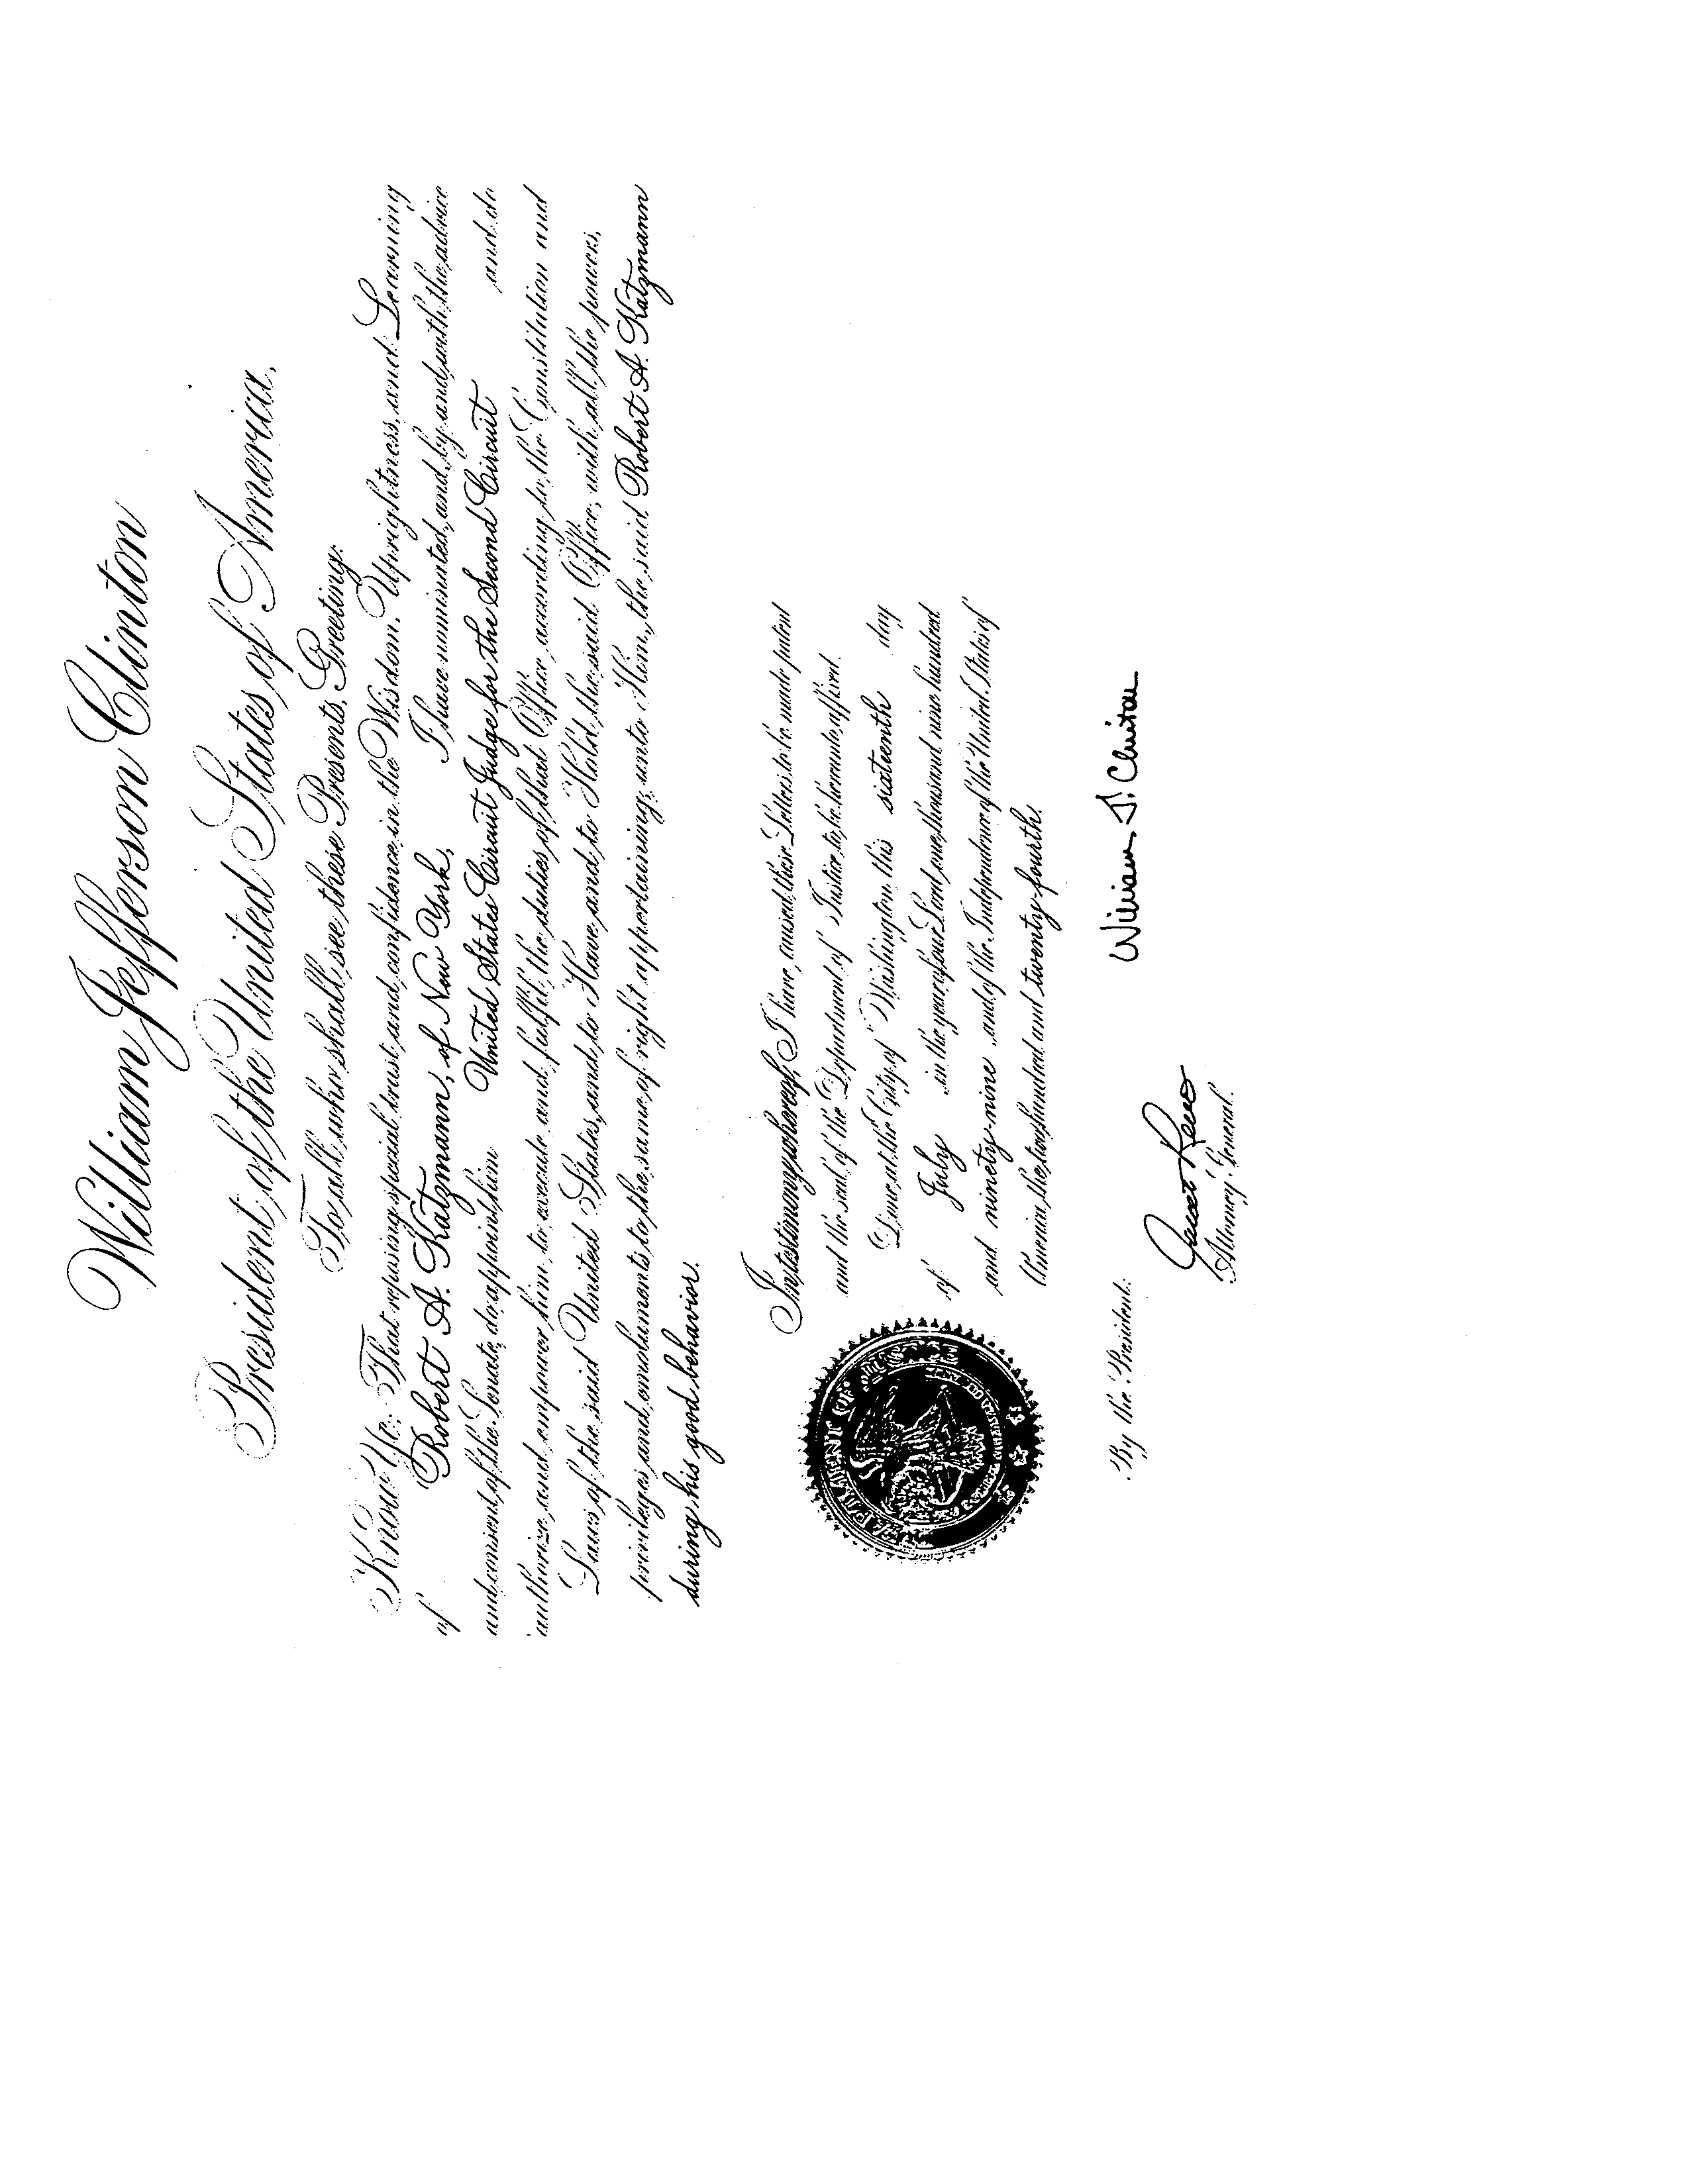 William Jefferson Clinton
President of the United States of America,
To all who shall see these Presents, Greeting:
Know Ye; That reposing special trust and confidence in the Wisdom, Uprightness, and Learning
of Robert A. Katzmann, of New York, I have nominated, and, by and with the advice
and consent of the Senate, do appoint him United States Circuit Judge for the Second Circuit and do
authorize and empower him to execute and fulfil the duties of that Office according to the Constitution and
Laws of the said United States, and to Have and to Hold the said Office, with all the powers,
privileges and emoluments to the same of right appertaining, unto Him, the said Robert A. Katzmann
during his good behavior.
In testimony whereof, I have caused these Letters to be made patent
and the seal of the Department of Justice to be hereunto affixed.
Done at the City of Washington this sixteenth day
of July in the year of our Lord one thousand nine hundred
and ninety-nine and of the Independence of the United States of
America the two hundred and twenty-fourth.
By the President:
William J. Clinton
Janet Reno
Attorney General.
DEPARTMENT OF JUSTICE